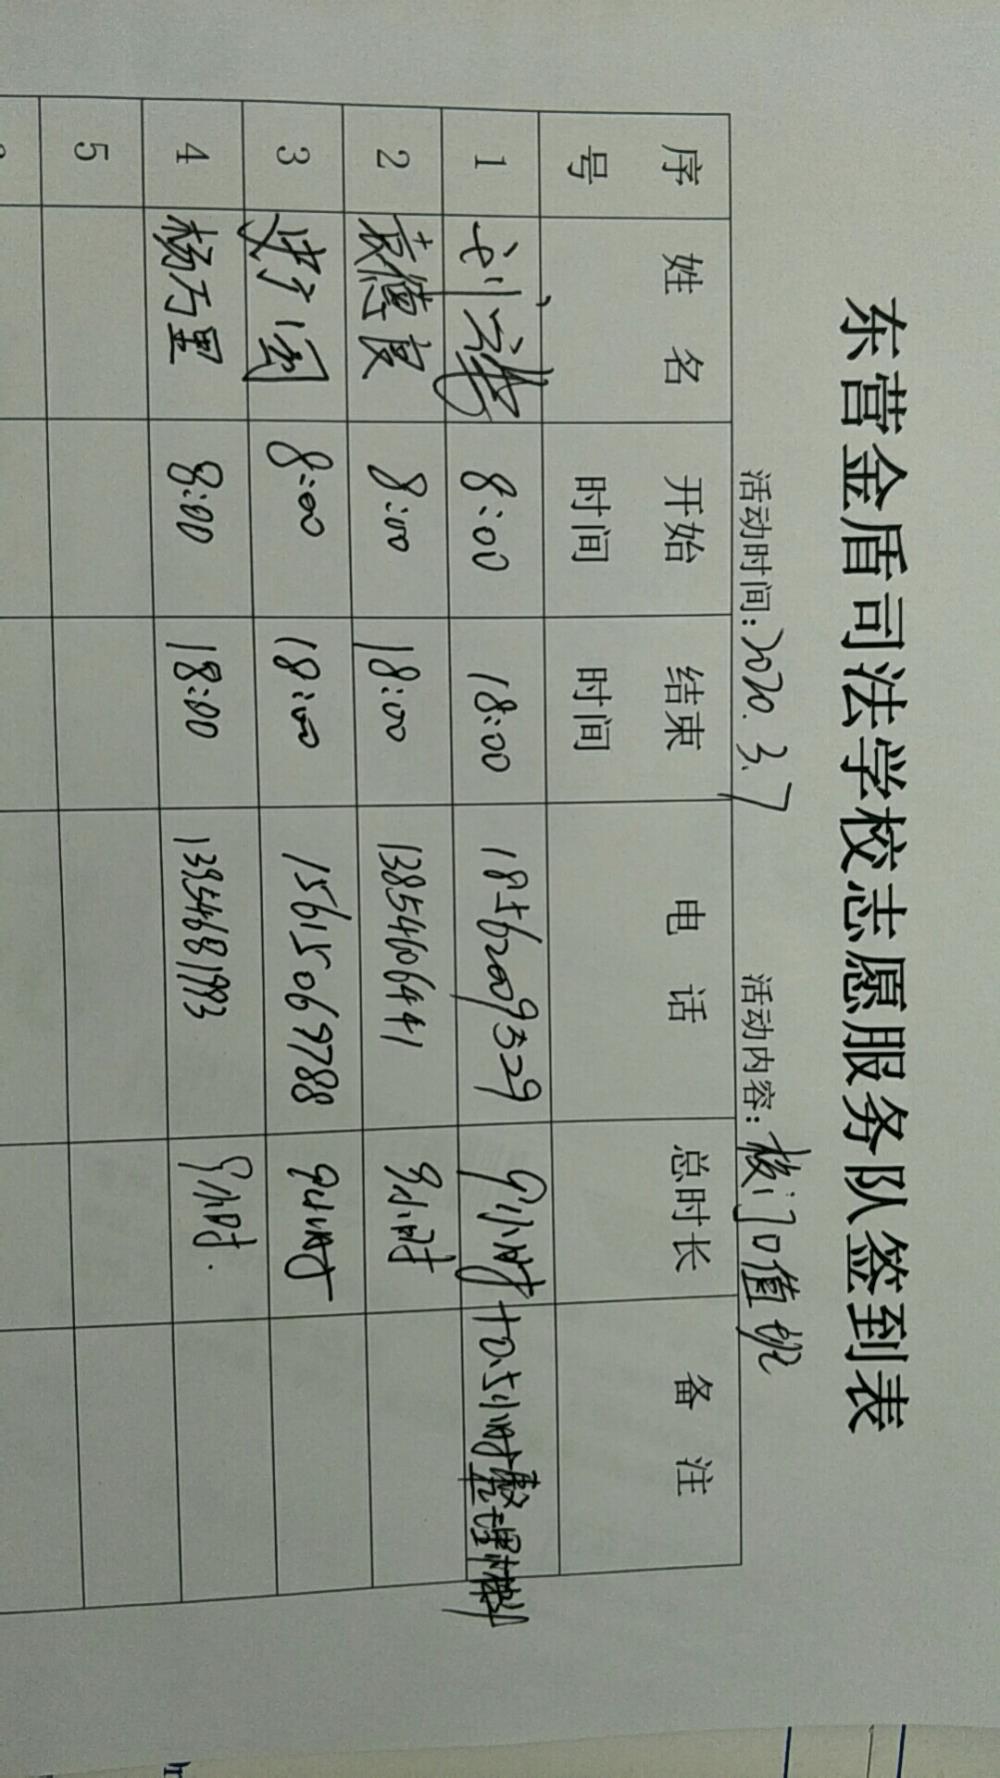 东营金盾司法学校志愿服务队签到表
活动时间：2020.3.7 活动内容：校门口值班
序号 姓名 开始时间 结束时间 电话 总时长 备注
1 刘 8:00 18:00 18562009329 9小时 +0.5小时整理材料
2 袁德良 8:00 18:00 13854606441 9小时
3 8:00 18:00 15615069788 9小时
4 杨万里 8:00 18:00 13954681993 9小时.
5